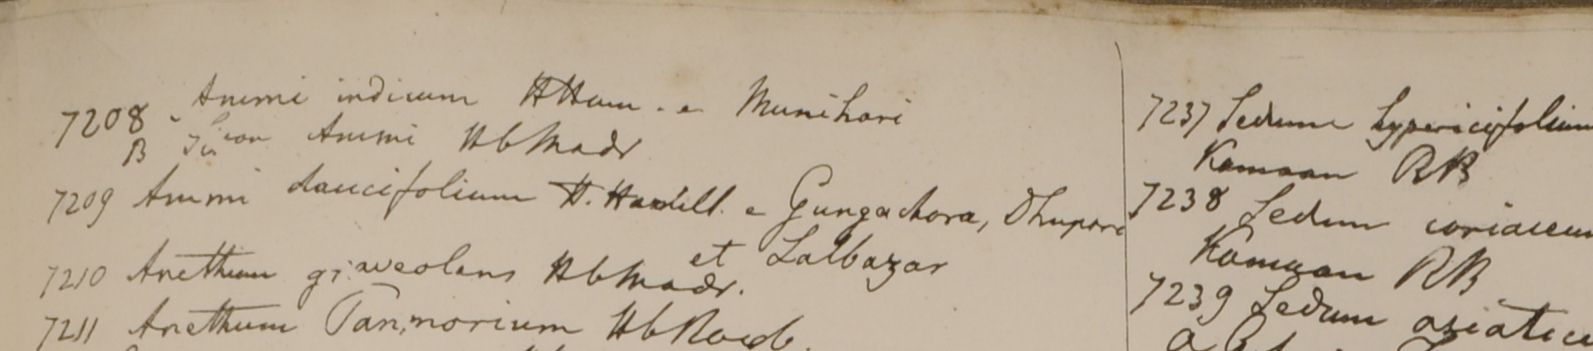 7208 Ammi indicum HHam. e Munihari
B Sison Ammi HbMadr
7209 Ammi daucifolium H. Hamill. e Gungachora, Dhupore
et Lalbazar
7210 Anethum graveolens HbMadr.
7211 Anethum Panmorium HbRoxb.
7237 Sedum hypericifolium
Kamaon RB
7238 Sedum coriaceum
Kamaon RB
7239 Sedum asiatic
a